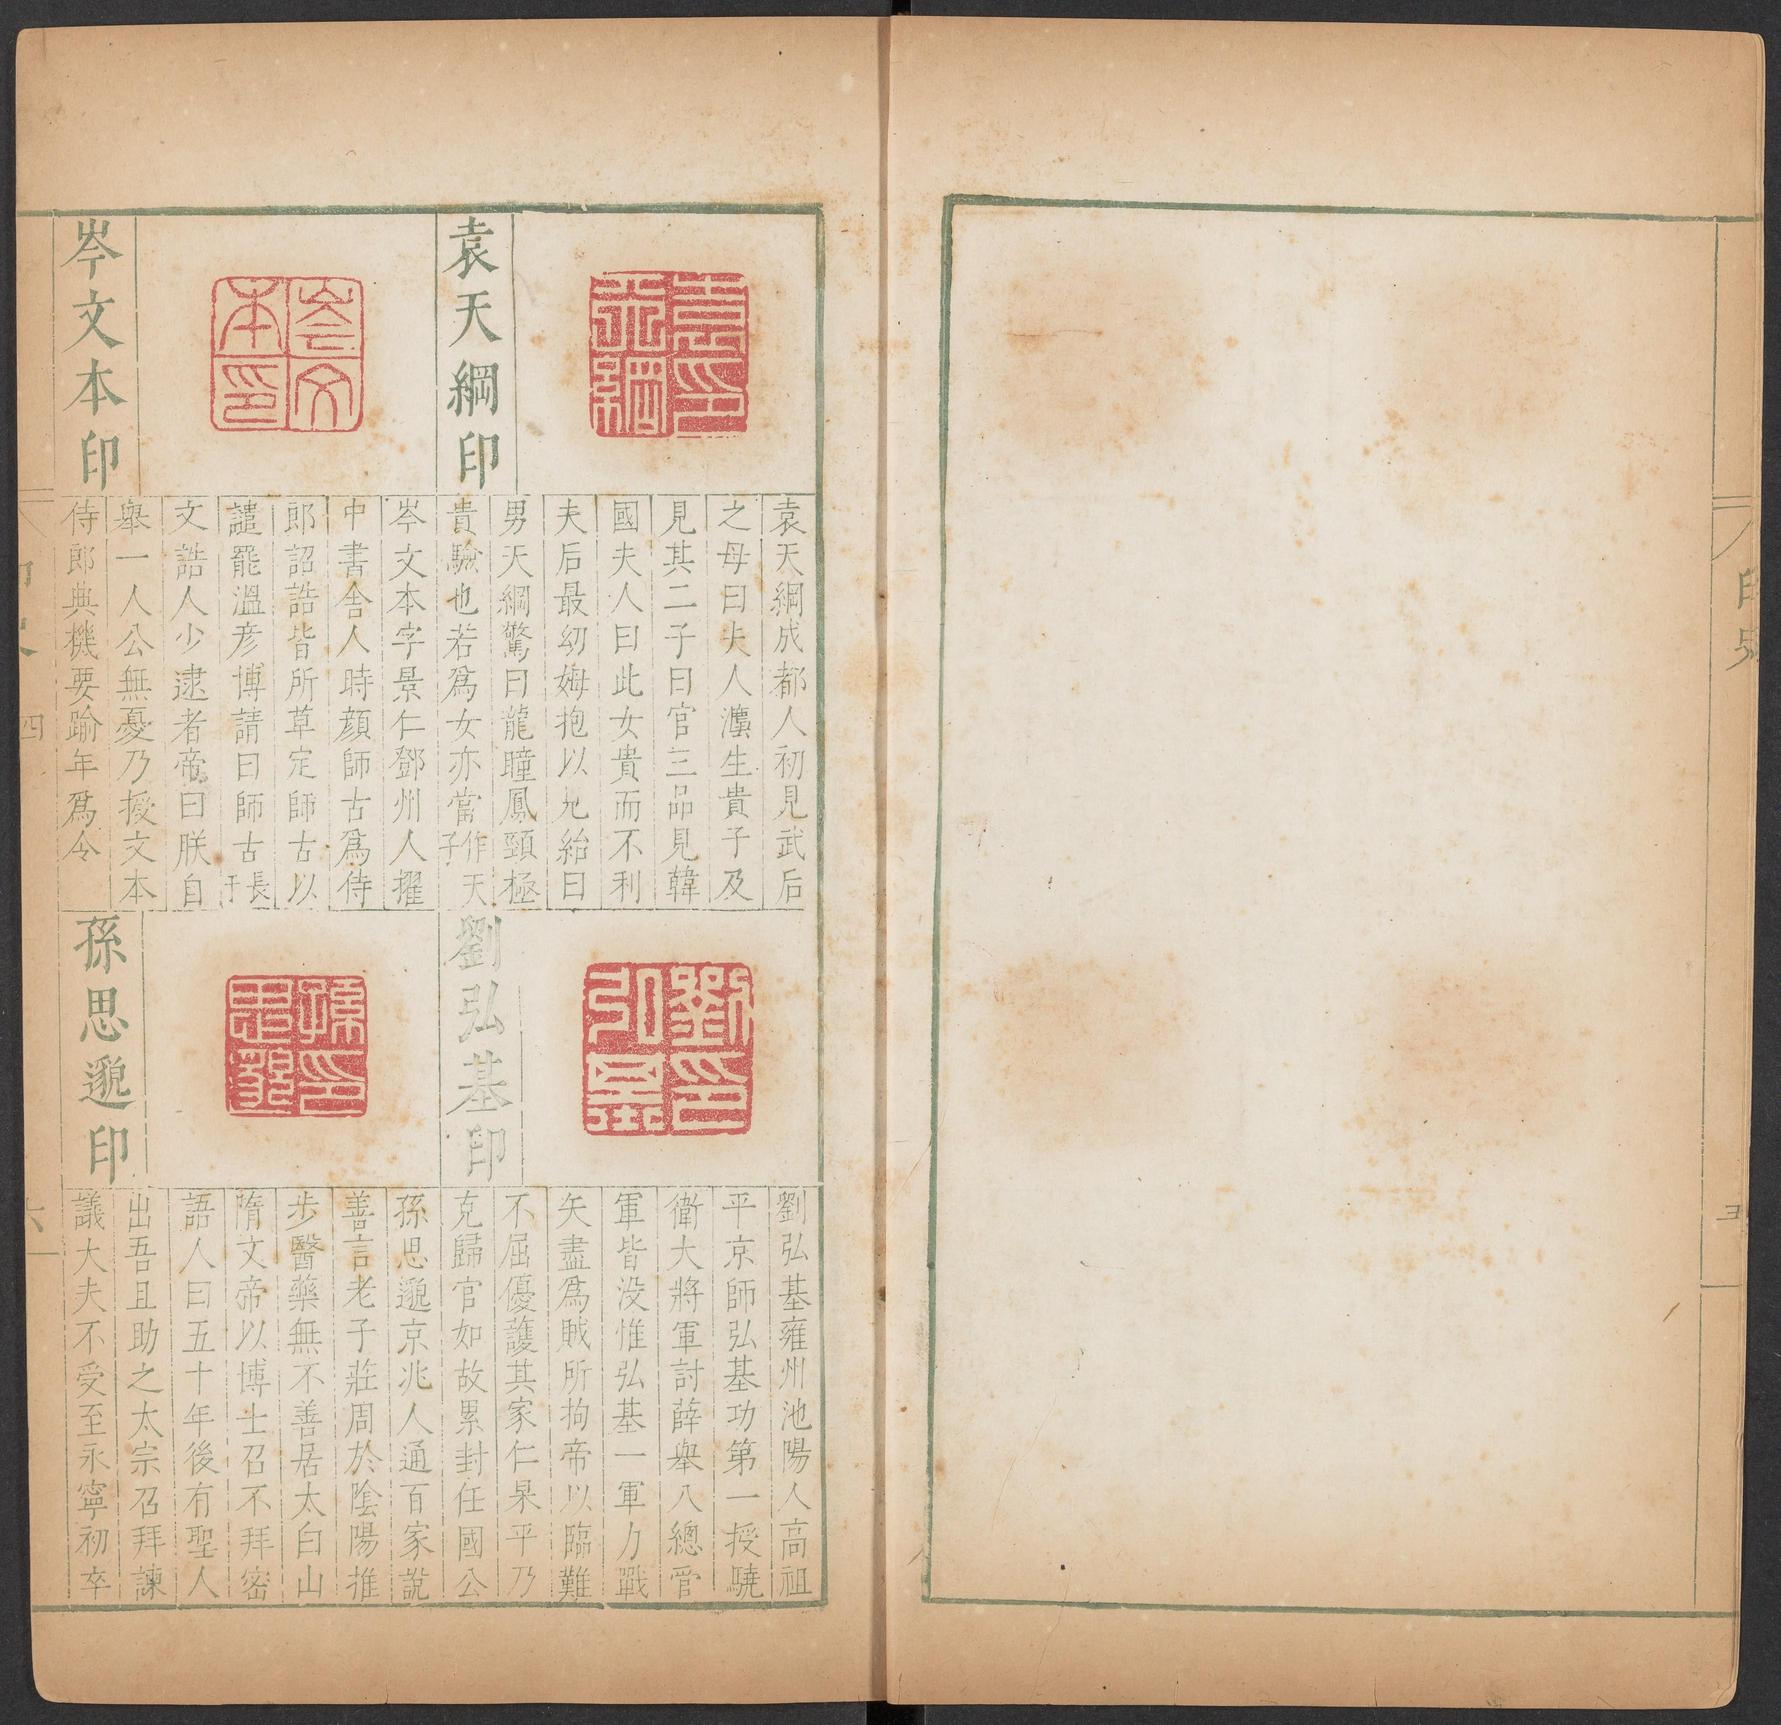 印史
五
袁天綱印
袁天綱成都人初見武后
之母曰夫人灋生貴子及
見其二子曰官三品見韓
國夫人曰此女貴而不利
夫后最幼姆抱以見紿曰
男天綱驚曰龍瞳鳳頸極
貴驗也若爲女亦當作天子
岑文本印
岑文本字景仁鄧州人擢
中書舍人時顏師古爲侍
郎詔誥皆所草定師古以
譴罷溫彥博請曰師古長于
文誥人少逮者帝曰朕自
舉一人公無憂乃授文本
侍郎典機要踰年爲令
劉弘基印
劉弘基雍州池陽人高祖
平京師弘基功第一授驍
衛大將軍討薛舉八總管
軍皆没惟弘基一軍力戰
矢盡爲賊所拘帝以臨難
不屈優護其家仁杲平乃
克歸官如故累封任國公
孫思邈印
孫思邈京兆人通百家說
善言老子莊周於陰陽推
步醫藥無不善居太白山
隋文帝以博士召不拜密
語人曰五十年後有聖人
出吾且助之太宗召拜諫
議大夫不受至永寧初卒
四
六
袁印天綱
岑文本印
劉印弘基
孫印思邈